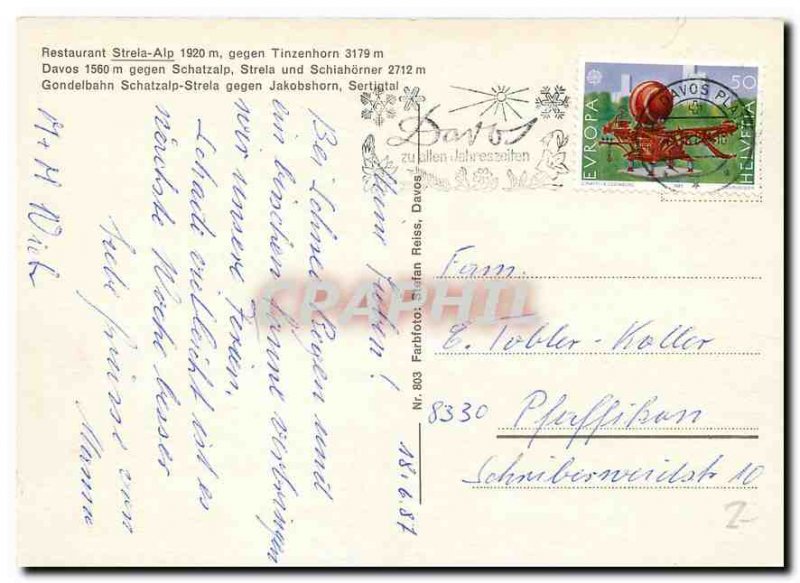 Restaurant Strela-Alp 1920 m, gegen Tinzenhorn 3179 m
Davos 1560 m gegen Schatzalp, Strela und Schiahörner 2712 m
Gondelbahn Schatzalp-Strela gegen Jakobshorn, Sertigtal
Davos
zu allen Jahreszeiten
DAVOS PLATZ
EUROPA
50
HELVETIA
Nr. 803 Farbfoto: Stefan Reiss, Davos
18.6.87
Bei Schnee Regen und
ein bischen Sonne verbringen
wir unsere Ferien.
Schade vielleicht ist es
nächste Woche besser
Liebe Grüsse von
Mama
Fam.
E. Tobler-Koller
8330 Pfäffikon
Schreiberweidstr 10
CPAPHIL
2-